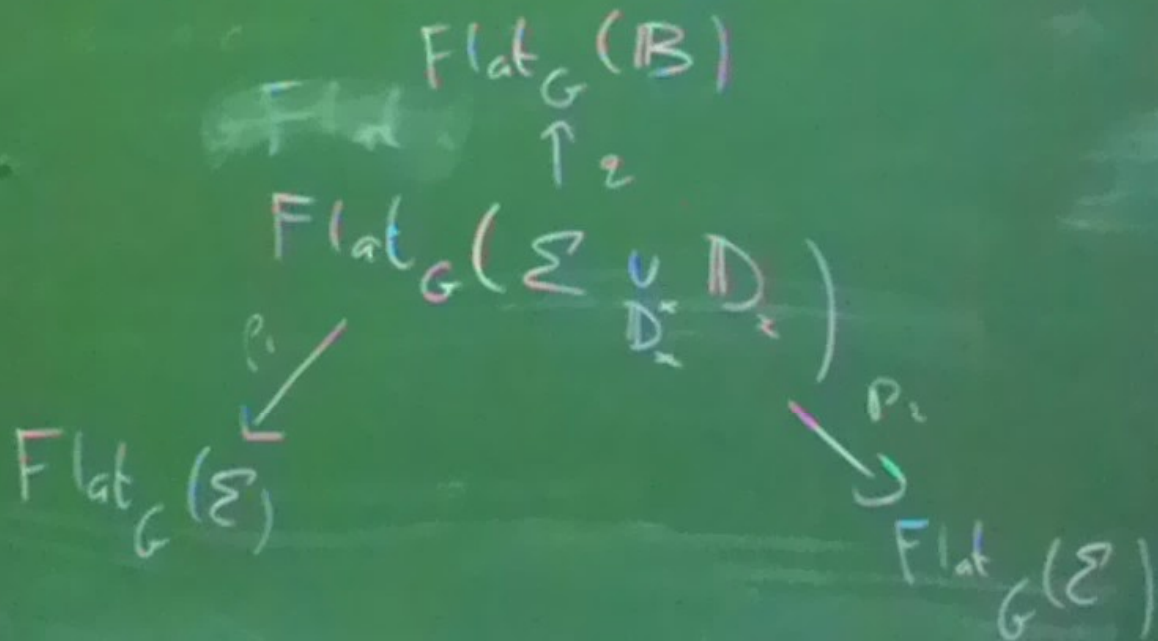 Flat_G (𝔹)
↑ q
Flat_G (Σ ∪_{𝔻_x^×} 𝔻_x)
p₁ p₂
Flat_G (Σ)
Flat_G (Σ)